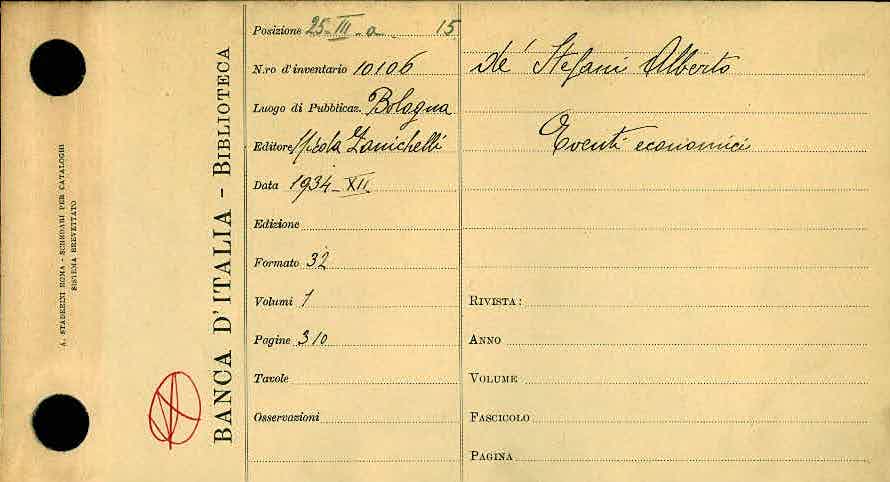 A. STADERINI ROMA - SCHEDARI PER CATALOGHI
SISTEMA BREVETTATO
BANCA D'ITALIA - BIBLIOTECA
Posizione 25-III-a 15
N.ro d'inventario 10106
Luogo di Pubblicaz. Bologna
Editore Nicola Zanichelli
Data 1934-XII
Edizione
Formato 32
Volumi 1
Pagine 310
Tavole
Osservazioni
de' Stefani Alberto
Eventi economici
RIVISTA:
ANNO
VOLUME
FASCICOLO
PAGINA